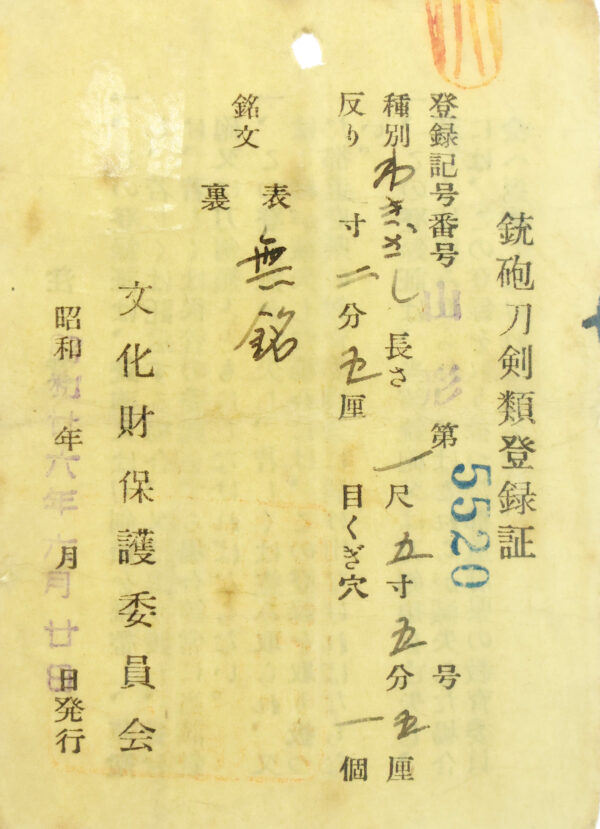 銃砲刀剣類登録証
登録記号番号 山形 第 5520 号
種別 わきざし 長さ 一尺五寸五分五厘
反り 寸二分五厘 目くぎ穴 一個
銘文
表 無銘
裏
文化財保護委員会
昭和 年 月 日発行
昭和廿六年 月廿 日